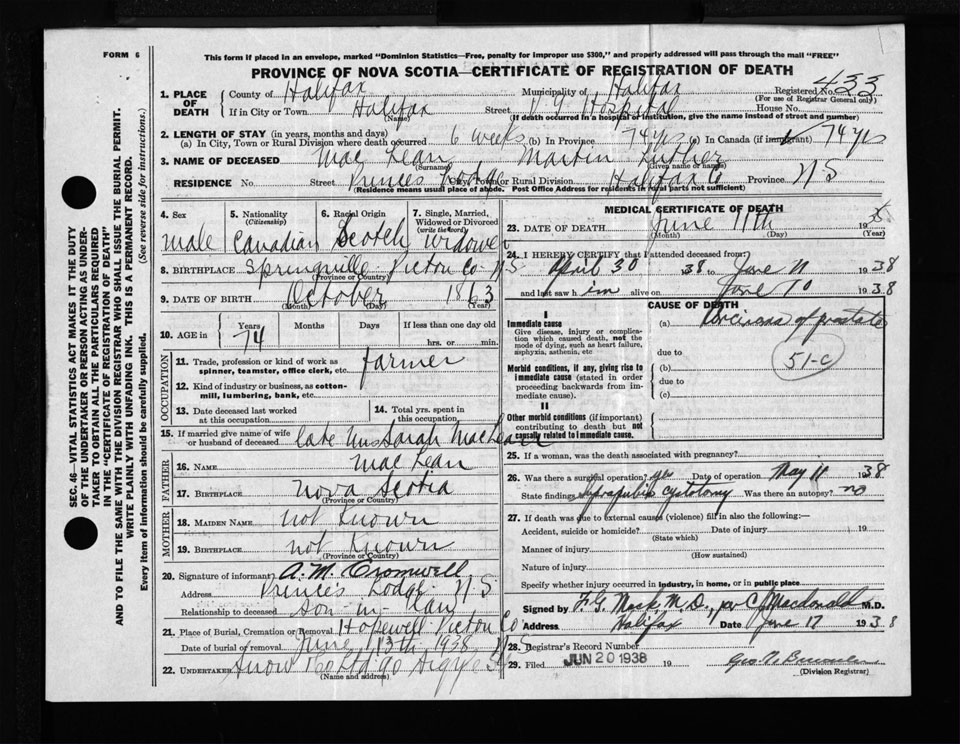 FORM 6
This form if placed in an envelope, marked "Dominion Statistics—Free, penalty for improper use $300," and properly addressed will pass through the mail "FREE"
PROVINCE OF NOVA SCOTIA—CERTIFICATE OF REGISTRATION OF DEATH
SEC. 46—VITAL STATISTICS ACT MAKES IT THE DUTY
OF THE UNDERTAKER OR PERSON ACTING AS UNDERTAKER
TO OBTAIN ALL THE PARTICULARS REQUIRED
IN THE "CERTIFICATE OF REGISTRATION OF DEATH"
AND TO FILE THE SAME WITH THE DIVISION REGISTRAR WHO SHALL ISSUE THE BURIAL PERMIT.
WRITE PLAINLY WITH UNFADING INK. THIS IS A PERMANENT RECORD.
Every item of information should be carefully supplied. (See reverse side for instructions.)
1. PLACE OF DEATH County of Halifax Municipality of Halifax Registered No. 433
(For use of Registrar General only)
If in City or Town Halifax (Name) Street V G Hospital House No.
(If death occurred in a hospital or institution, give the name instead of street and number)
2. LENGTH OF STAY (in years, months and days)
(a) In City, Town or Rural Division where death occurred 6 weeks (b) in Province 74 yrs (c) in Canada (if immigrant) 74 yrs
3. NAME OF DECEASED MacLean (Surname) Martin Luther (Given name or names)
RESIDENCE No. Street Princes Lodge City, Town or Rural Division Halifax Co Province N S
(Residence means usual place of abode. Post Office Address for residents in rural parts not sufficient)
4. Sex male
5. Nationality (Citizenship) Canadian
6. Racial Origin Scotch
7. Single, Married, Widowed or Divorced (write the word) widower
8. BIRTHPLACE Springville Pictou Co N-S
(Province or Country)
9. DATE OF BIRTH October 1863
(Month) (Day) (Year)
10. AGE in Years 74 Months Days If less than one day
hrs. or min.
OCCUPATION
11. Trade, profession or kind of work as spinner, teamster, office clerk, etc. farmer
12. Kind of industry or business, as cotton-mill, lumbering, bank, etc.
13. Date deceased last worked at this occupation
14. Total yrs. spent in this occupation
15. If married give name of wife or husband of deceased late Mrs Sarah MacLean
FATHER
16. NAME MacLean
17. BIRTHPLACE Nova Scotia
(Province or Country)
MOTHER
18. MAIDEN NAME not Known
19. BIRTHPLACE not Known
(Province or Country)
20. Signature of informant A. M. Cromwell
Address Princes Lodge N S
Relationship to deceased Son-in-law
21. Place of Burial, Cremation or Removal Hopewell Pictou Co
Date of burial or removal June 13th 1938 N-S
22. UNDERTAKER Snow Co Ltd 90 Argyle St
(Name and address)
MEDICAL CERTIFICATE OF DEATH
23. DATE OF DEATH June 11th 193
(Month) (Day) (Year)
24. I HEREBY CERTIFY that I attended deceased from:
April 30 1938 to June 11 1938
and last saw him alive on June 10 1938
CAUSE OF DEATH
I
Immediate cause
Give disease, injury or complication which caused death, not the mode of dying, such as heart failure, asphyxia, asthenia, etc
(a) Carcinoma of prostate
due to
51-c
Morbid conditions, if any, giving rise to immediate cause (stated in order proceeding backwards from immediate cause).
(b)
due to
(c)
II
Other morbid conditions (if important) contributing to death but not causally related to immediate cause.
25. If a woman, was the death associated with pregnancy?
26. Was there a surgical operation? yes Date of operation May 11 1938
State findings Suprapubic cystotomy Was there an autopsy? no
27. If death was due to external causes (violence) fill in also the following:—
Accident, suicide or homicide? Date of injury 19
(State which)
Manner of injury
(How sustained)
Nature of injury
Specify whether injury occurred in industry, in home, or in public place
Signed by F. G. Mack, M.D., per C J Macdonald M.D.
Address Halifax Date June 17 1938
28. Registrar's Record Number
29. Filed JUN 20 1938 19
(Division Registrar)